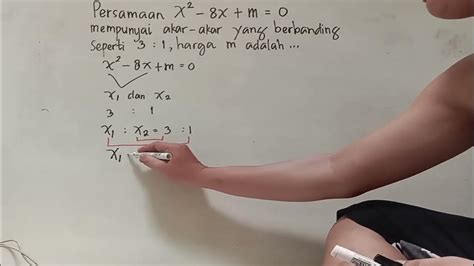 Persamaan x² - 8x + m = 0
mempunyai akar-akar yang berbanding
seperti 3 : 1, harga m adalah ...
x² - 8x + m = 0
x₁ dan x₂
3 : 1
x₁ : x₂ = 3 : 1
x₁